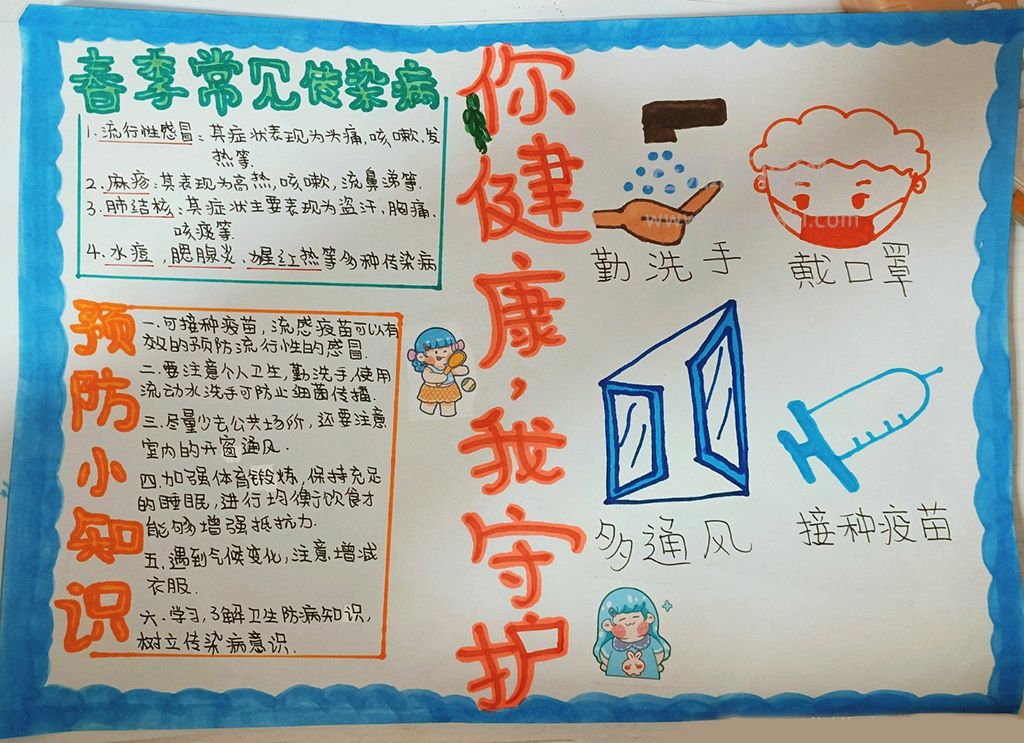 春季常见传染病
1.流行性感冒:其症状表现为头痛,咳嗽,发
热等.
2.麻疹:其表现为高热,咳嗽,流鼻涕等.
3.肺结核:其症状主要表现为盗汗,胸痛,
咳痰等.
4.水痘,腮腺炎,猩红热等多种传染病
预防小知识
一.可接种疫苗,流感疫苗可以有
效的预防流行性的感冒.
二.要注意个人卫生,勤洗手,使用
流动水洗手可防止细菌传播.
三.尽量少去公共场所,还要注意
室内的开窗通风.
四.加强体育锻炼,保持充足
的睡眠,进行均衡饮食才
能够增强抵抗力.
五.遇到气候变化,注意增减
衣服.
六.学习,了解卫生防病知识,
树立传染病意识.
你健康,我守护
勤洗手
戴口罩
多通风
接种疫苗